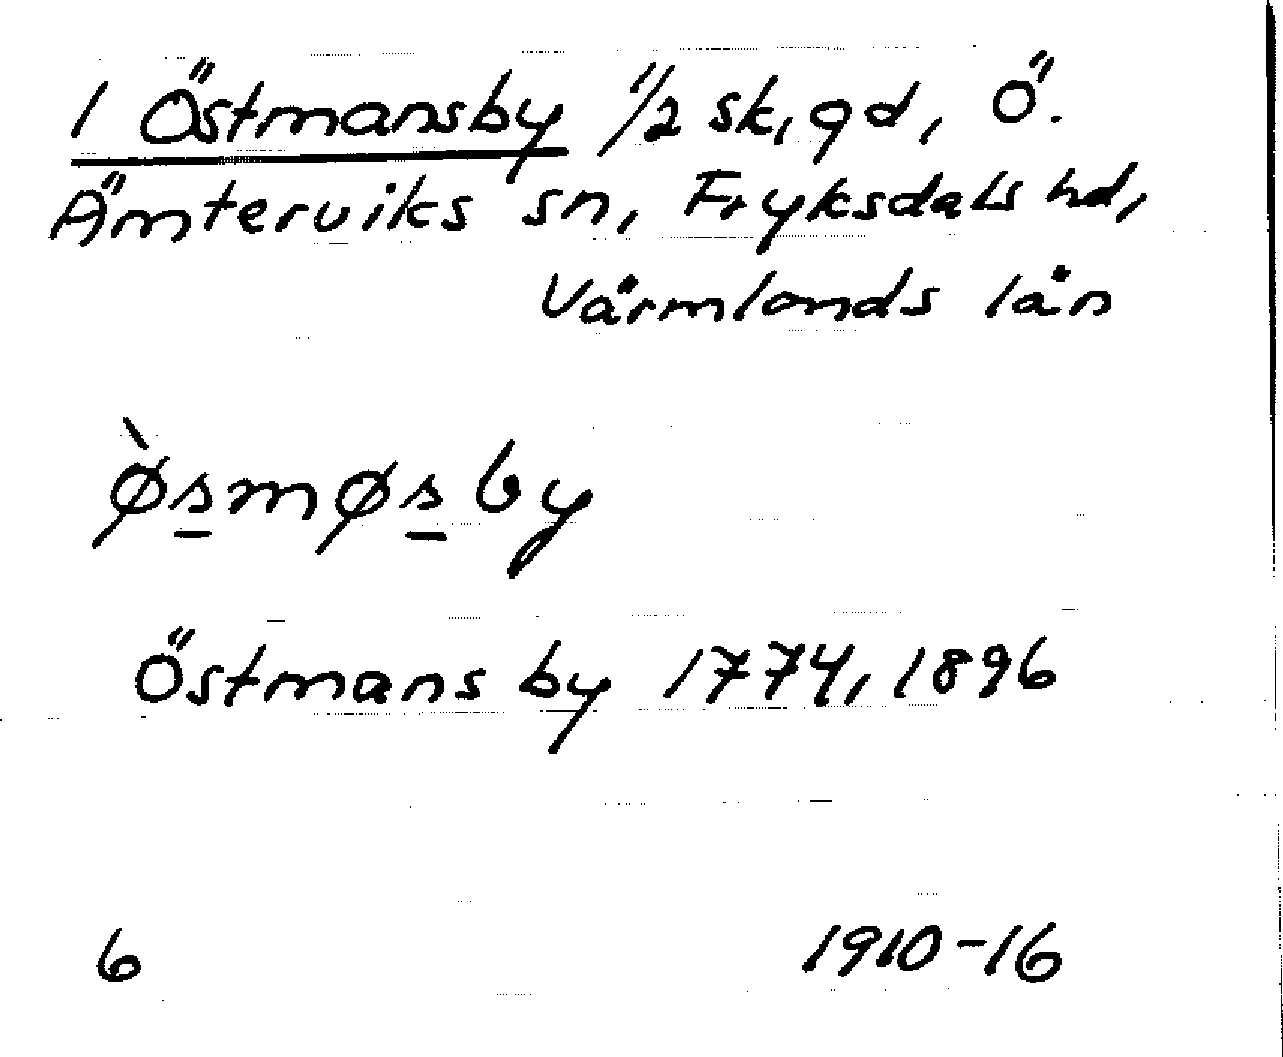 1 Östmansby 1/2 sk, gd, Ö.
Ämterviks sn, Fryksdals hd,
Värmlands län
ø̀s̲møs̲by
Östmans by 1774, 1896
6 1910-16